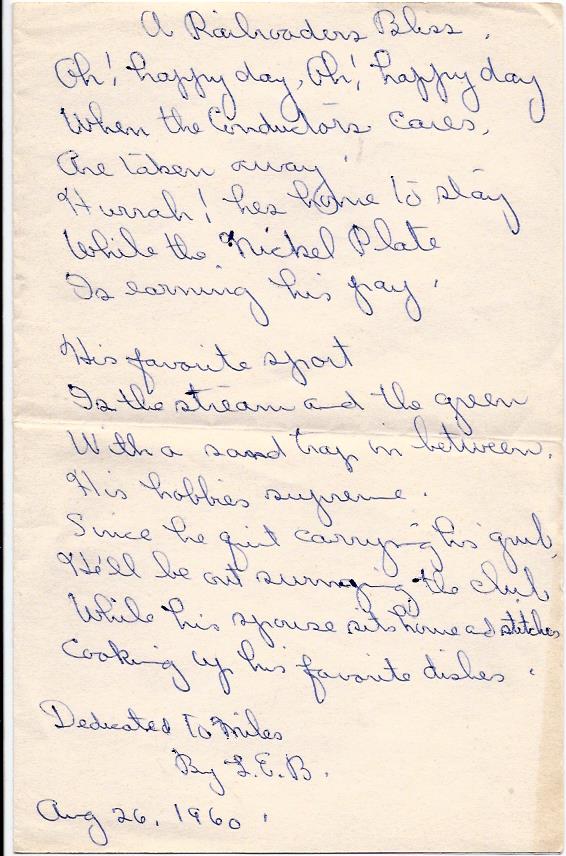 A Railroaders Bliss.
Oh! happy day, Oh! happy day
When the Conductors cares,
Are taken away.
Hurrah! hes home to stay
While the Nickel Plate
Is earning his pay.
His favorite sport
Is the stream and the green
With a sand trap in between.
His hobbies supreme.
Since he quit carrying his grub,
He'll be out swinging the club
While his spouse sits home and stitches
Cooking up his favorite dishes.
Dedicated to Miles
By L.E.B.
Aug 26, 1960.